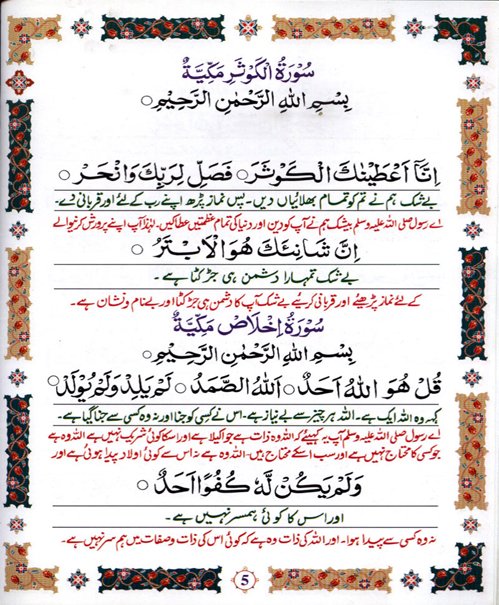 سُوْرَةُ الْكَوْثَرِ مَكِّيَّةٌ
بِسْمِ اللهِ الرَّحْمٰنِ الرَّحِيْمِ
اِنَّآ اَعْطَيْنٰكَ الْكَوْثَرَ فَصَلِّ لِرَبِّكَ وَانْحَرْ
بے شک ہم نے تم کو تمام بھلائیاں دیں۔ پس نماز پڑھ اپنے رب کے لئے اور قربانی دے۔
اے رسول صلی اللہ علیہ وسلم بیشک ہم نے آپ کو دین اور دنیا کی تمام عظمتیں عطا کیں۔ لہٰذا آپ اپنے پرورش کرنیوالے
اِنَّ شَانِئَكَ هُوَ الْاَبْتَرُ
بے شک تمہارا دشمن ہی جڑ کٹا ہے۔
کے لئے نماز پڑھیئے اور قربانی کریئے بے شک آپ کا دشمن ہی جڑ کٹا اور بے نام و نشان ہے۔
سُوْرَةُ اِخْلَاصْ مَكِّيَّةٌ
بِسْمِ اللهِ الرَّحْمٰنِ الرَّحِيْمِ
قُلْ هُوَ اللهُ اَحَدٌ اَللهُ الصَّمَدُ لَمْ يَلِدْ وَلَمْ يُوْلَدْ
کہہ وہ اللہ ایک ہے۔ اللہ ہر چیز سے بے نیاز ہے۔ اس نے کسی کو جنا اور نہ وہ کسی سے جنا گیا ہے۔
اے رسول صلی اللہ علیہ وسلم آپ یہ کہیئے کہ اللہ وہ ذات ہے جو اکیلا ہے اور اسکا کوئی شریک نہیں ہے اللہ وہ ہے
جو کسی کا محتاج نہیں ہے اور سب اسکے محتاج ہیں۔ اللہ وہ ہے نہ اس سے کوئی اولاد پیدا ہوئی ہے اور
وَلَمْ يَكُنْ لَّهٗ كُفُوًا اَحَدٌ
اور اس کا کوئی ہمسر نہیں ہے۔
نہ وہ کسی سے پیدا ہوا۔ اور اللہ کی ذات وہ ہے کہ کوئی اس کی ذات و صفات میں ہم سر نہیں ہے۔
5